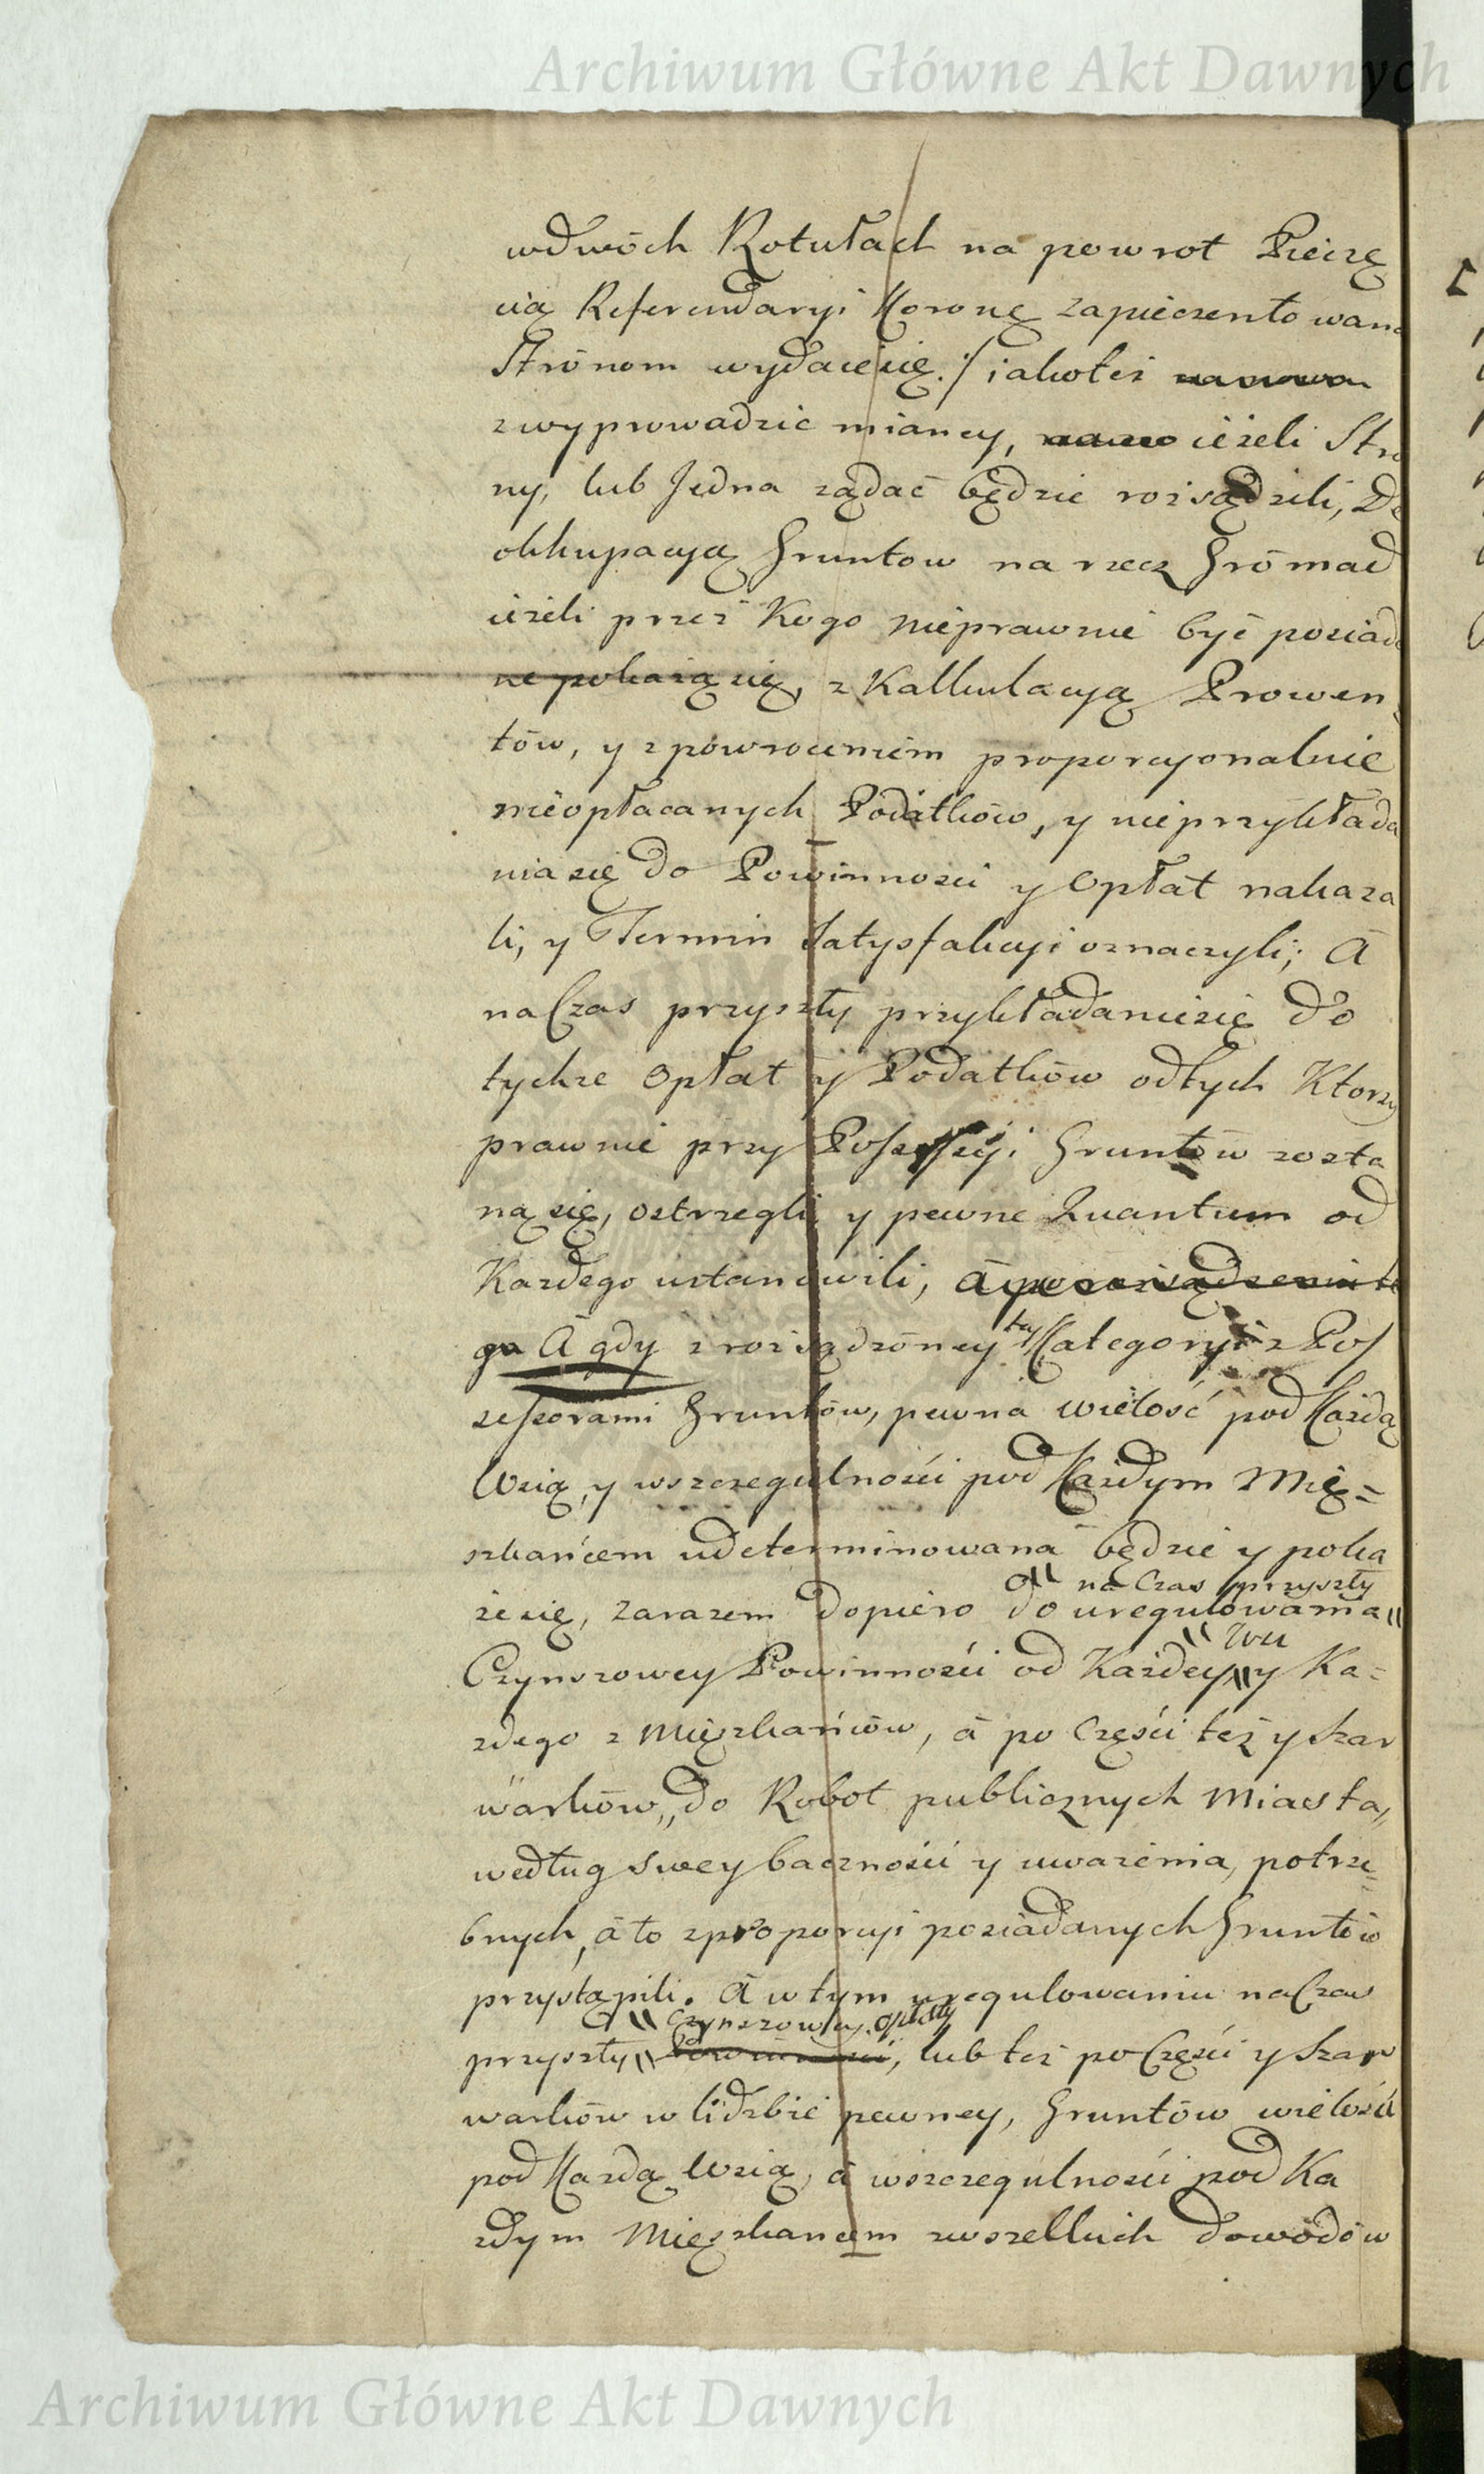 Archiwum Główne Akt Dawnych
wdwóch Rotułach na powrot Pieczę
cią Referendaryi Koronę zapieczentowane
Strónom wydacsię./ iakoteż
zwyprowadzić mianey, ieżeli Stro
ny, lub Jedna ządać będzie rozsądzili, Do
okkupacyą Gruntow na rzecz Grómad
ieżeli przez Kogo nieprawnie być posiada
ne pokażą się, z Kalkulacyą Prowen
tów, y zpowroceniem proporcyonalnie
nieopłacanych Podatków, y nieprzykłada
nia się do Powinnosci y Opłat nakaza
li, y Termin Satysfakcyi oznaczyli; A
na Czas przyszły przykładaniesię do
tychze Opłat y Podatków odtych Ktorzy
prawnie przy Possessyi Gruntów zosta
ną się, ostrzegli y pewne Quantum od
Kazdego ustanowili, á po rozsądzeniu te
go A gdy z rozsądzóney tey Kategoryi z Pos
sessorami Gruntów, pewna wielość pod Każdą
Wsią, y wszczegulności pod Każdym Mię=
szkańcem udeterminowana będzie y poka
że się, zarazem dopiero do uregulowania
na Czas przyszły
Czynszowey Powinności od Każdey y Ka=
Wsi
zdego z Mięszkańców, á po Części też y Szar
warków, do Robot publicznych Miasta,
według swey baczności y uważenia, potrze=
bnych, á to zproporcyi posiadanych Gruntów
przystąpili. A w tym uregulowaniu na Czas
Czynszowey Opłaty
przyszły Powinności, lub też po Części y Szar
warków w lidzbie pewney, Gruntów wielości
pod Kazdą Wsią, á wszczegulności pod Ka
zdym Mięszkancem zwszelkich dowodów
Archiwum Główne Akt Dawnych